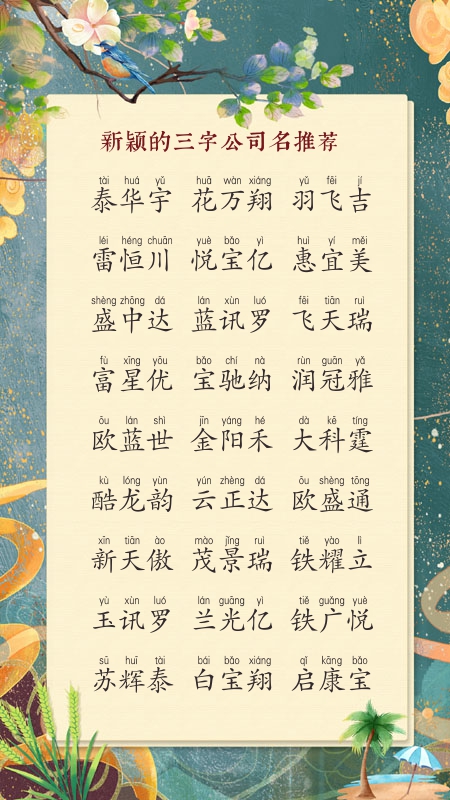 新颖的三字公司名推荐
tài huá yǔ huā wàn xiáng yǔ fēi jí
泰华宇 花万翔 羽飞吉
léi héng chuān yuè bǎo yì huì yí měi
雷恒川 悦宝亿 惠宜美
shèng zhōng dá lán xùn luó fēi tiān ruì
盛中达 蓝讯罗 飞天瑞
fù xīng yōu bǎo chí nà rùn guān yǎ
富星优 宝驰纳 润冠雅
ōu lán shì jīn yáng hé dà kē tíng
欧蓝世 金阳禾 大科霆
kù lóng yùn yún zhèng dá ōu shèng tōng
酷龙韵 云正达 欧盛通
xīn tiān ào mào jǐng ruì tiě yào lì
新天傲 茂景瑞 铁耀立
yù xùn luó lán guāng yì tiě guǎng yuè
玉讯罗 兰光亿 铁广悦
sū huī tài bái bǎo xiáng qǐ kāng bǎo
苏辉泰 白宝翔 启康宝